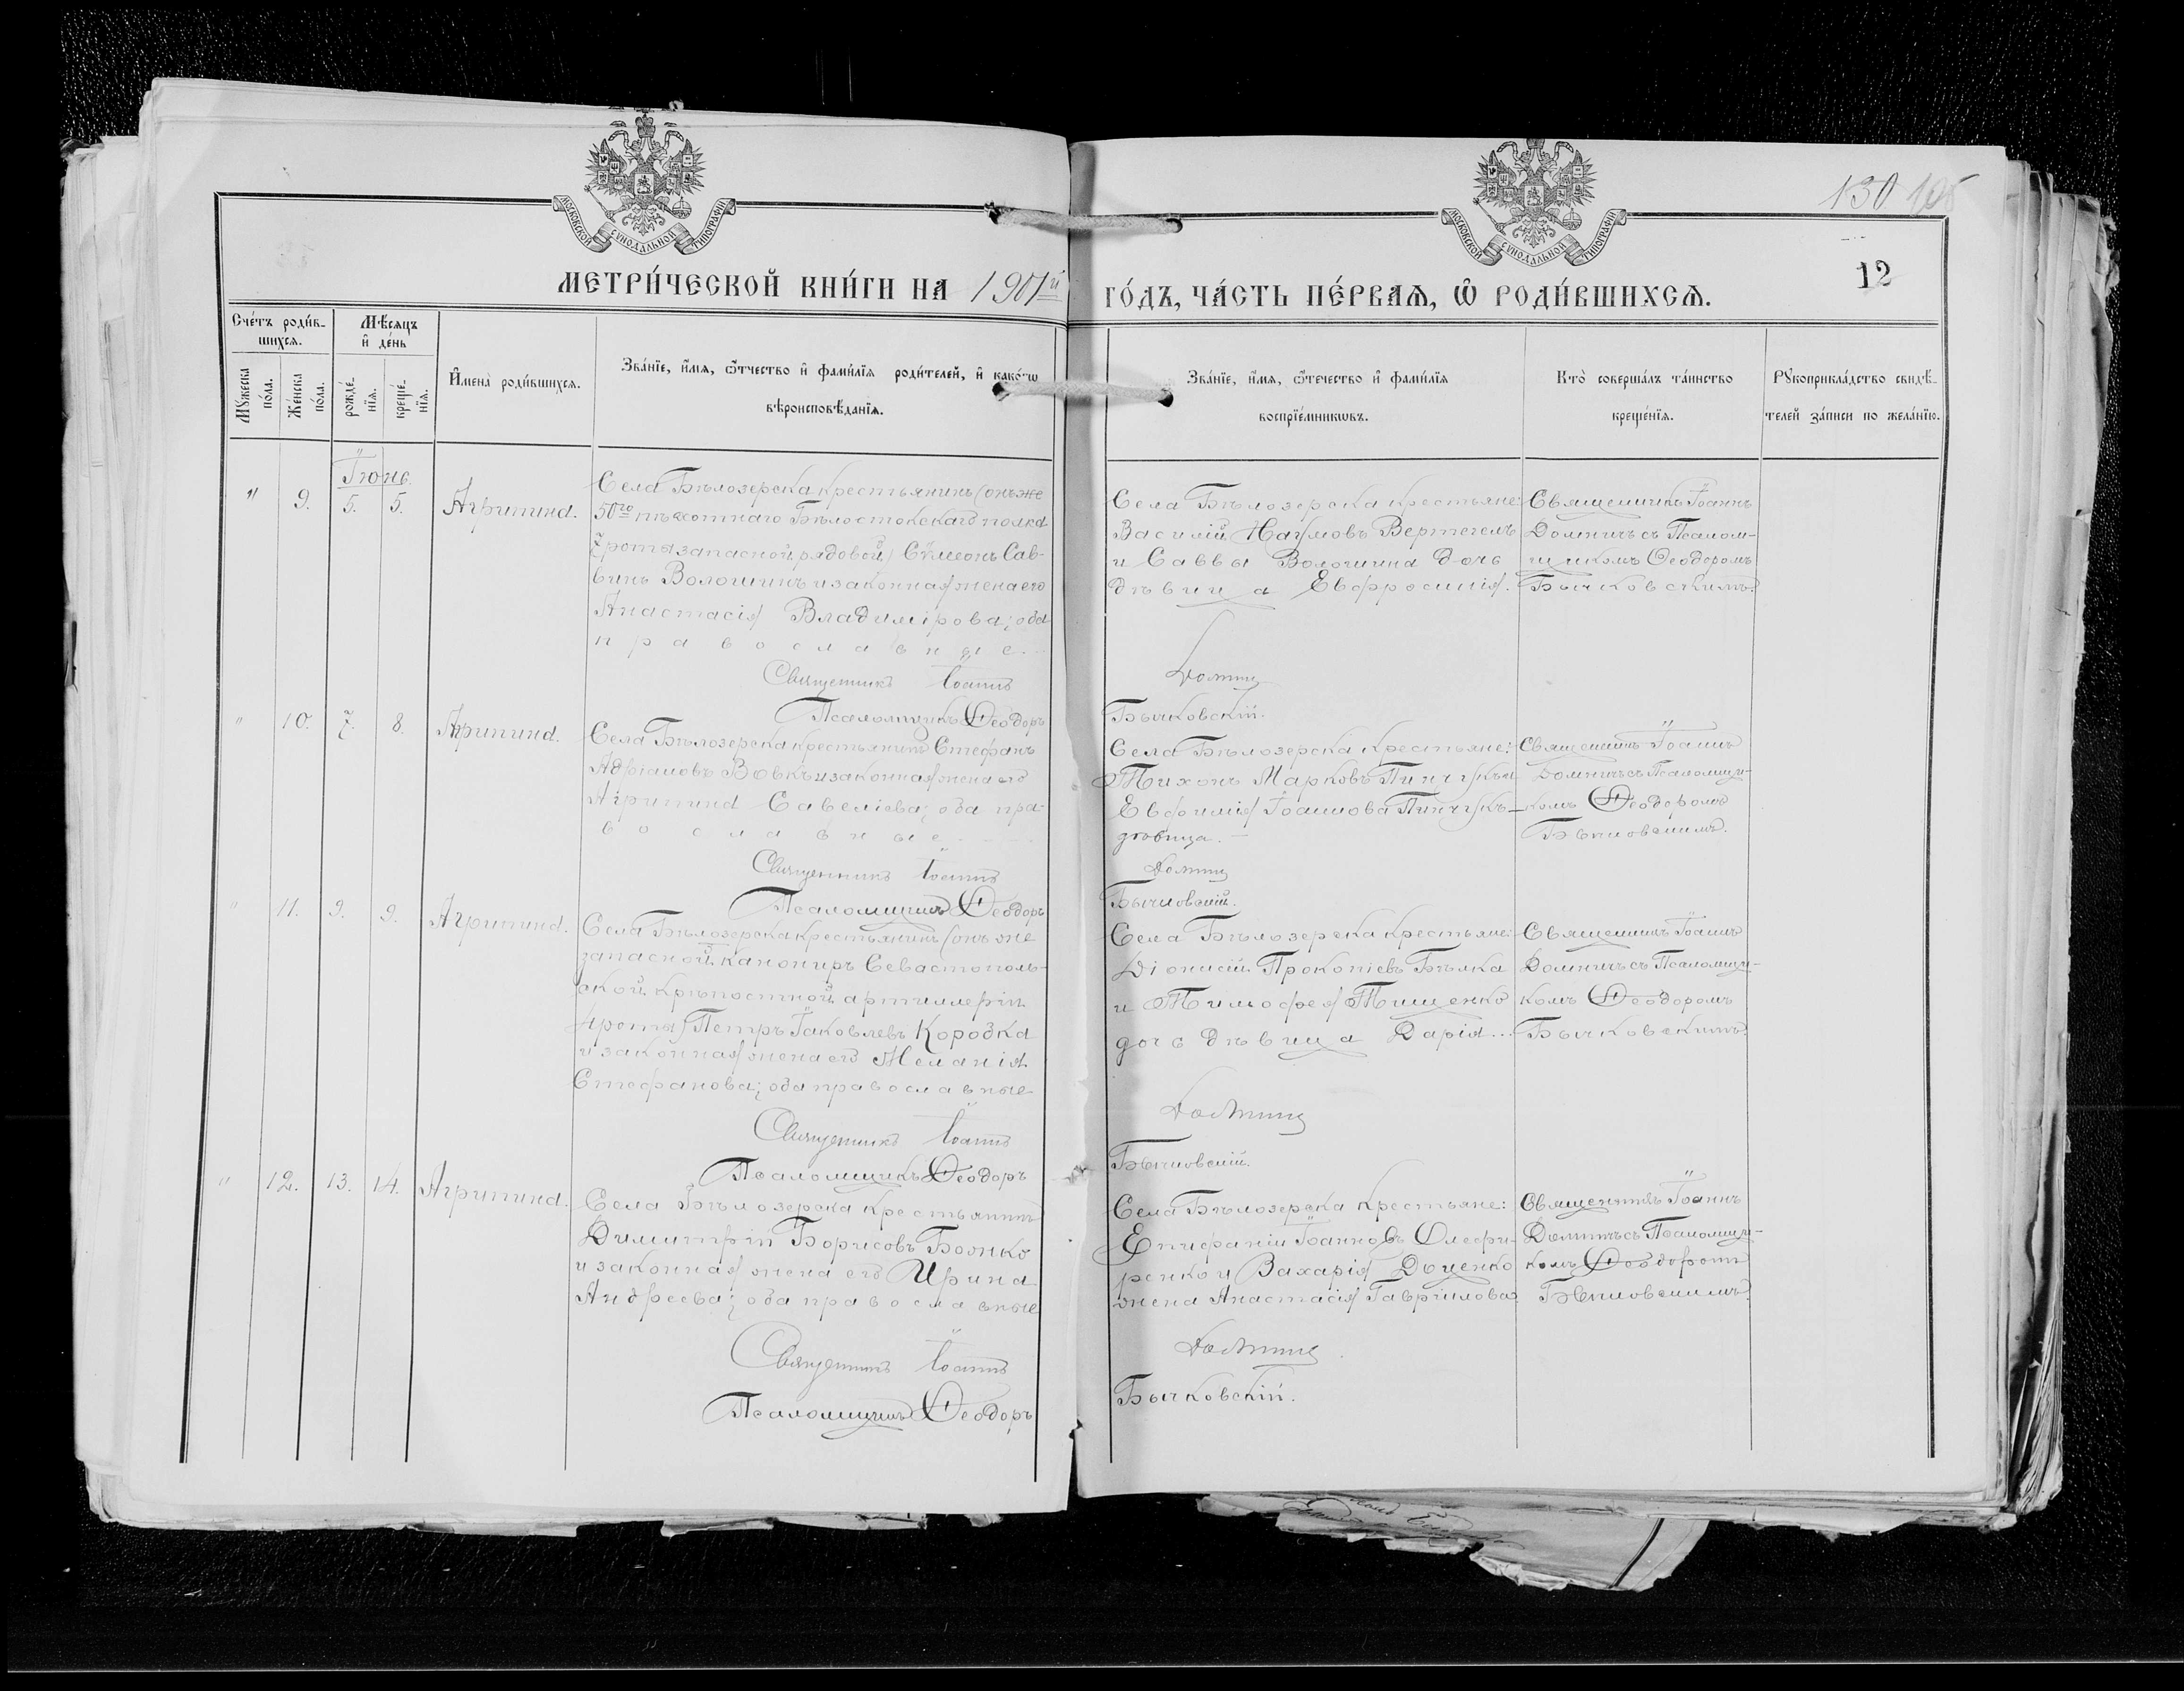 МОСКОВСКОЙ СѴНОДАЛЬНОЙ ТИПОГРАФІИ
МОСКОВСКОЙ СѴНОДАЛЬНОЙ ТИПОГРАФІИ
130
12
МЕТРИ́ЧЕСКОЙ КНИ́ГИ НА 1901й ГО́ДЪ, ЧА́СТЬ ПЕ́РВАѦ, Ѡ҆ РОДИ́ВШИХСѦ.
Сче́тъ роди́в-
шихсѧ.
Мѣ́сѧцъ
и҆ де́нь
Мꙋ́жеска по́ла.
Же́нска по́ла.
рожде́-
нїѧ.
креще́-
нїѧ.
И҆мена̀ роди́вшихсѧ.
Зва́нїе, и҆́мѧ, ѻ҆́тчество и҆ фами́лїѧ роди́телей, и҆ како́гѡ
вѣроисповѣ́данїѧ.
Зва́нїе, и҆́мѧ, ѻ҆́течество и҆ фами́лїѧ
воспрїе́мникѡвъ.
Кто̀ соверша́лъ та́инство
креще́нїѧ.
Рꙋкоприкла́дство свидѣ́-
телей за́писи по жела́нїю.
Іюнь
" 9. 5. 5. Агрипина.
Села Бѣлозерска крестьянинъ (онъ же
50го пѣхотнаго Бѣлостокскаго полка
7 роты запасной рядовой) Сѵмеонъ Сав-
винъ Волошинъ и законная жена его
Анастасія Владимірова; оба
православные.
Священникъ Іоаннъ
Псаломщикъ Ѳеодоръ
Села Бѣлозерска крестьяне:
Василій Наумовъ Вертегелъ
и Саввы Волошина дочь
дѣвица Евфросинія.
Домнич
Бычковскій.
Священникъ Іоаннъ
Домничъ съ Псалом-
щикомъ Ѳеодоромъ
Бычковскимъ.
" 10. 7. 8. Агрипина.
Села Бѣлозерска крестьянинъ Стефанъ
Адріановъ Вовкъ и законная жена его
Агрипина Савеліева; оба пра-
вославные.
Священникъ Іоаннъ
Псаломщикъ Ѳеодоръ
Села Бѣлозерска крестьяне:
Тихонъ Марковъ Пинчукъ и
Евфимія Іоаннова Пинчукъ-
дѣвица.
Домнич
Бычковскій.
Священникъ Іоаннъ
Домничъ съ Псаломщи-
комъ Ѳеодоромъ
Бычковскимъ.
" 11. 9. 9. Агрипина.
Села Бѣлозерска крестьянинъ (онъ же
запасной канониръ Севастополь-
ской крѣпостной артиллеріи
4 роты) Петръ Іаковлевъ Коробка
и законная жена его Меланія
Стефанова; оба православные
Священникъ Іоаннъ
Псаломщикъ Ѳеодоръ
Села Бѣлозерска крестьяне:
Діонисій Прокопіевъ Бѣлка
и Тимофея Тищенко
дочь дѣвица Дарія...
Домнич
Бычковскій.
Священникъ Іоаннъ
Домничъ съ Псаломщи-
комъ Ѳеодоромъ
Бычковскимъ.
" 12. 13. 14. Агрипина.
Села Бѣлозерска крестьянинъ
Димитрій Борисовъ Божко
и законная жена его Ирина
Андреева; оба православные
Священникъ Іоаннъ
Псаломщикъ Ѳеодоръ
Села Бѣлозерска крестьяне:
Епифаній Іоанновъ Олефи-
ренко и Захарія Доценко
жена Анастасія Гаврилова.
Домнич
Бычковскій.
Священникъ Іоаннъ
Домничъ съ Псаломщи-
комъ Ѳеодоромъ
Бычковскимъ.